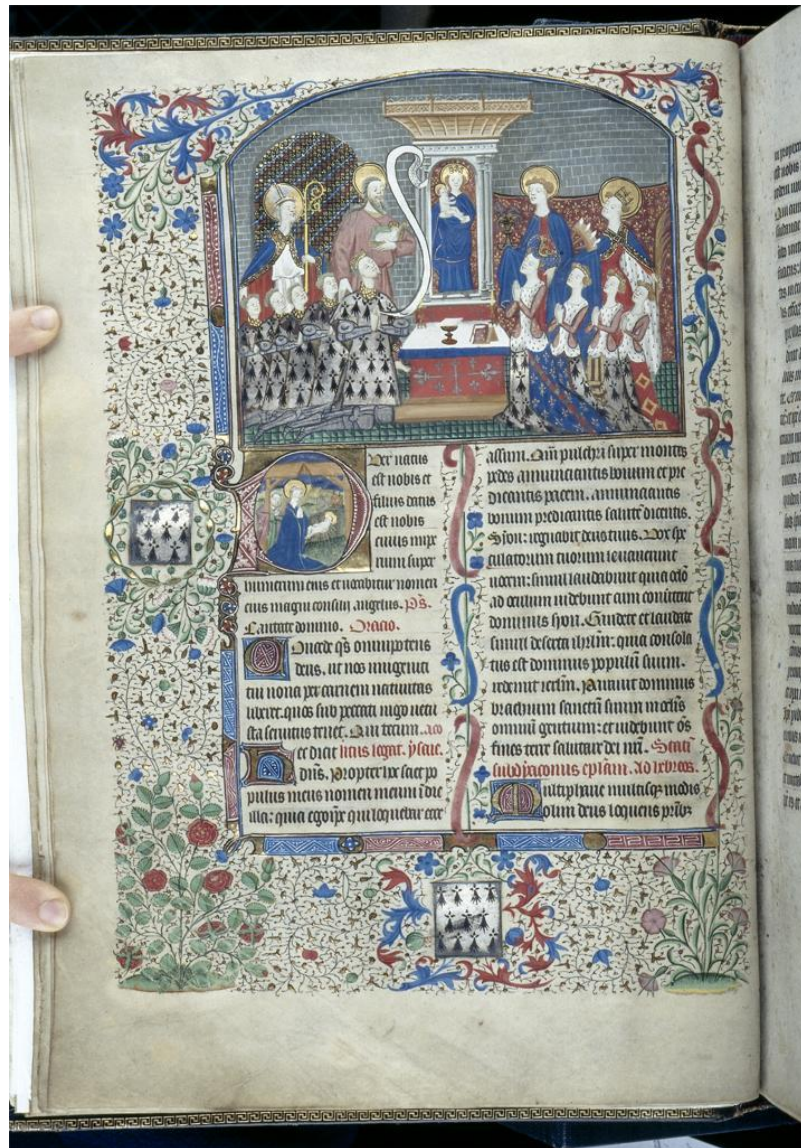 Puer natus
est nobis et
filius datus
est nobis
cuius impe
rium super
humerum eius et vocabitur nomen
eius magni consilii angelus. p̄s.
Cantate domino. Oracio.
Concede q̄s omnipotens
deus, ut nos unigeniti
tui nova per carnem nativitas
liberet. quos sub peccati iugo vetu
sta servitus tenet.
et dicat
dn̄s. Propter hoc sciet po
pulus meus nomen meum ī die
illa: quia ego ip̄e qui loquebar ecce
assum. Q̄m pulchri super montes
pedes annunciantis bonum et pre
dicantis pacem. annunciantis
bonum predicantis salutē dicentis.
Syon: regnabit deus tuus. Vox spe
culatorum tuorum levaverunt
vocem: simul laudabunt quia oc̄lo
ad oculum videbunt cum cōverterit
dominus syon. Gaudete et laudate
simul deserta ihrl̄m: quia consola
tus est dominus populū suum.
redemit ierl̄m. Paravit dominus
brachium sanctū suum in oc̄lis
omniū gentium: et videbunt oēs
fines terre salutare dei nr̄i.
subdyaconus ep̄lam. Ad hebreos.
Multipharie multisq̄ modis
olim deus loquens pr̄ibȝ